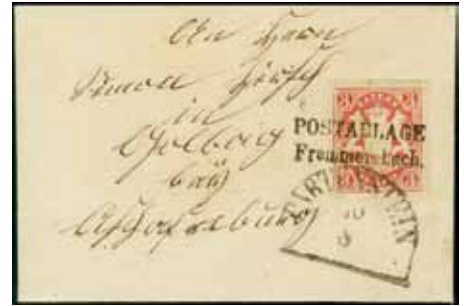 An Herrn
Simon Hirsch
in
Goldbach
bey
Aschaffenburg
3 3
POSTABLAGE
Frammersbach.
3 3
10